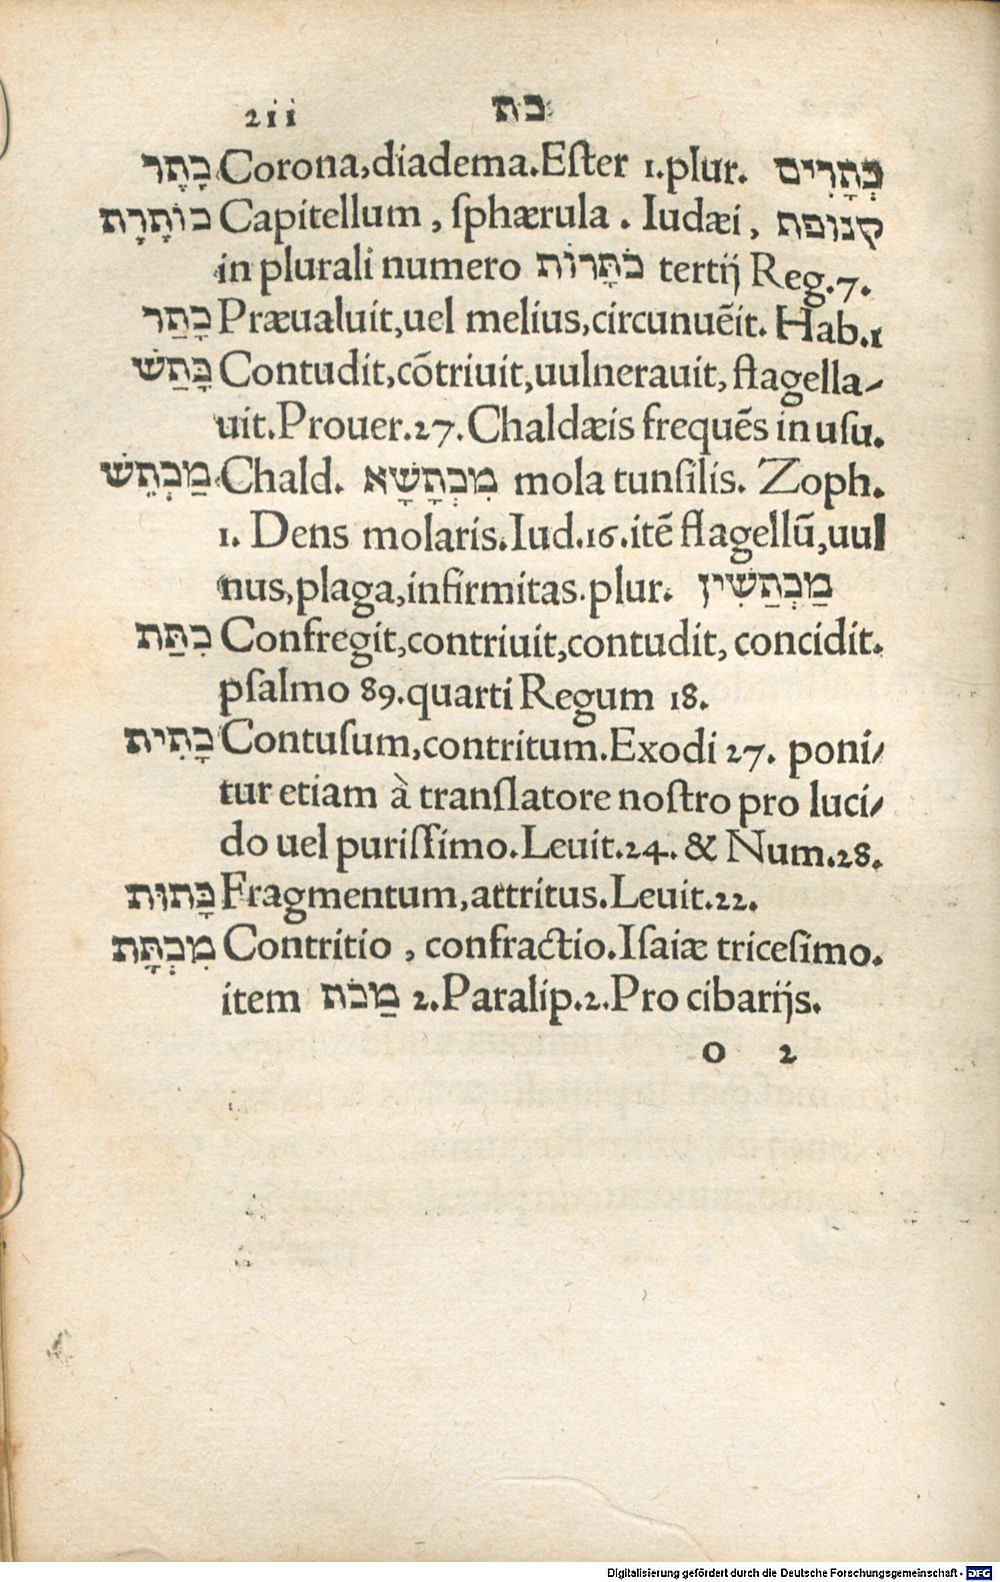 211 כת
כָּתֶר Corona,diadema.Eſter 1.plur. כְּתָרִים
כוֹתָרֶת Capitellum , ſphærula . Iudæi , קנופת
in plurali numero כֹתָּרוֹת tertij Reg.7.
כָּתַר Præualuit,uel melius,circunuẽit. Hab.1
כָּתַשׁ Contudit,cõtriuit,uulnerauit, flagella⸗
uit.Prouer.27.Chaldæis frequẽs in uſu.
מַכְתֵּשׁ Chald. מִכְתָּשָׁא mola tunſilis. Zoph.
1. Dens molaris.Iud.16.itẽ flagellũ,uul
nus,plaga,infirmitas.plur. מַכְתַּשִׁין
כִתַּת Confregit,contriuit,contudit, concidit.
pſalmo 89.quarti Regum 18.
כָּתִית Contuſum,contritum.Exodi 27. poni⸗
tur etiam à tranſlatore noſtro pro luci⸗
do uel puriſſimo.Leuit.24. & Num.28.
כָּתוּת Fragmentum,attritus.Leuit.22.
מִכְתָּת Contritio , confractio.Iſaiæ triceſimo.
item מַכֹּת 2.Paralip.2.Pro cibarijs.
O 2
Digitalisierung gefördert durch die Deutsche Forschungsgemeinschaft - DFG